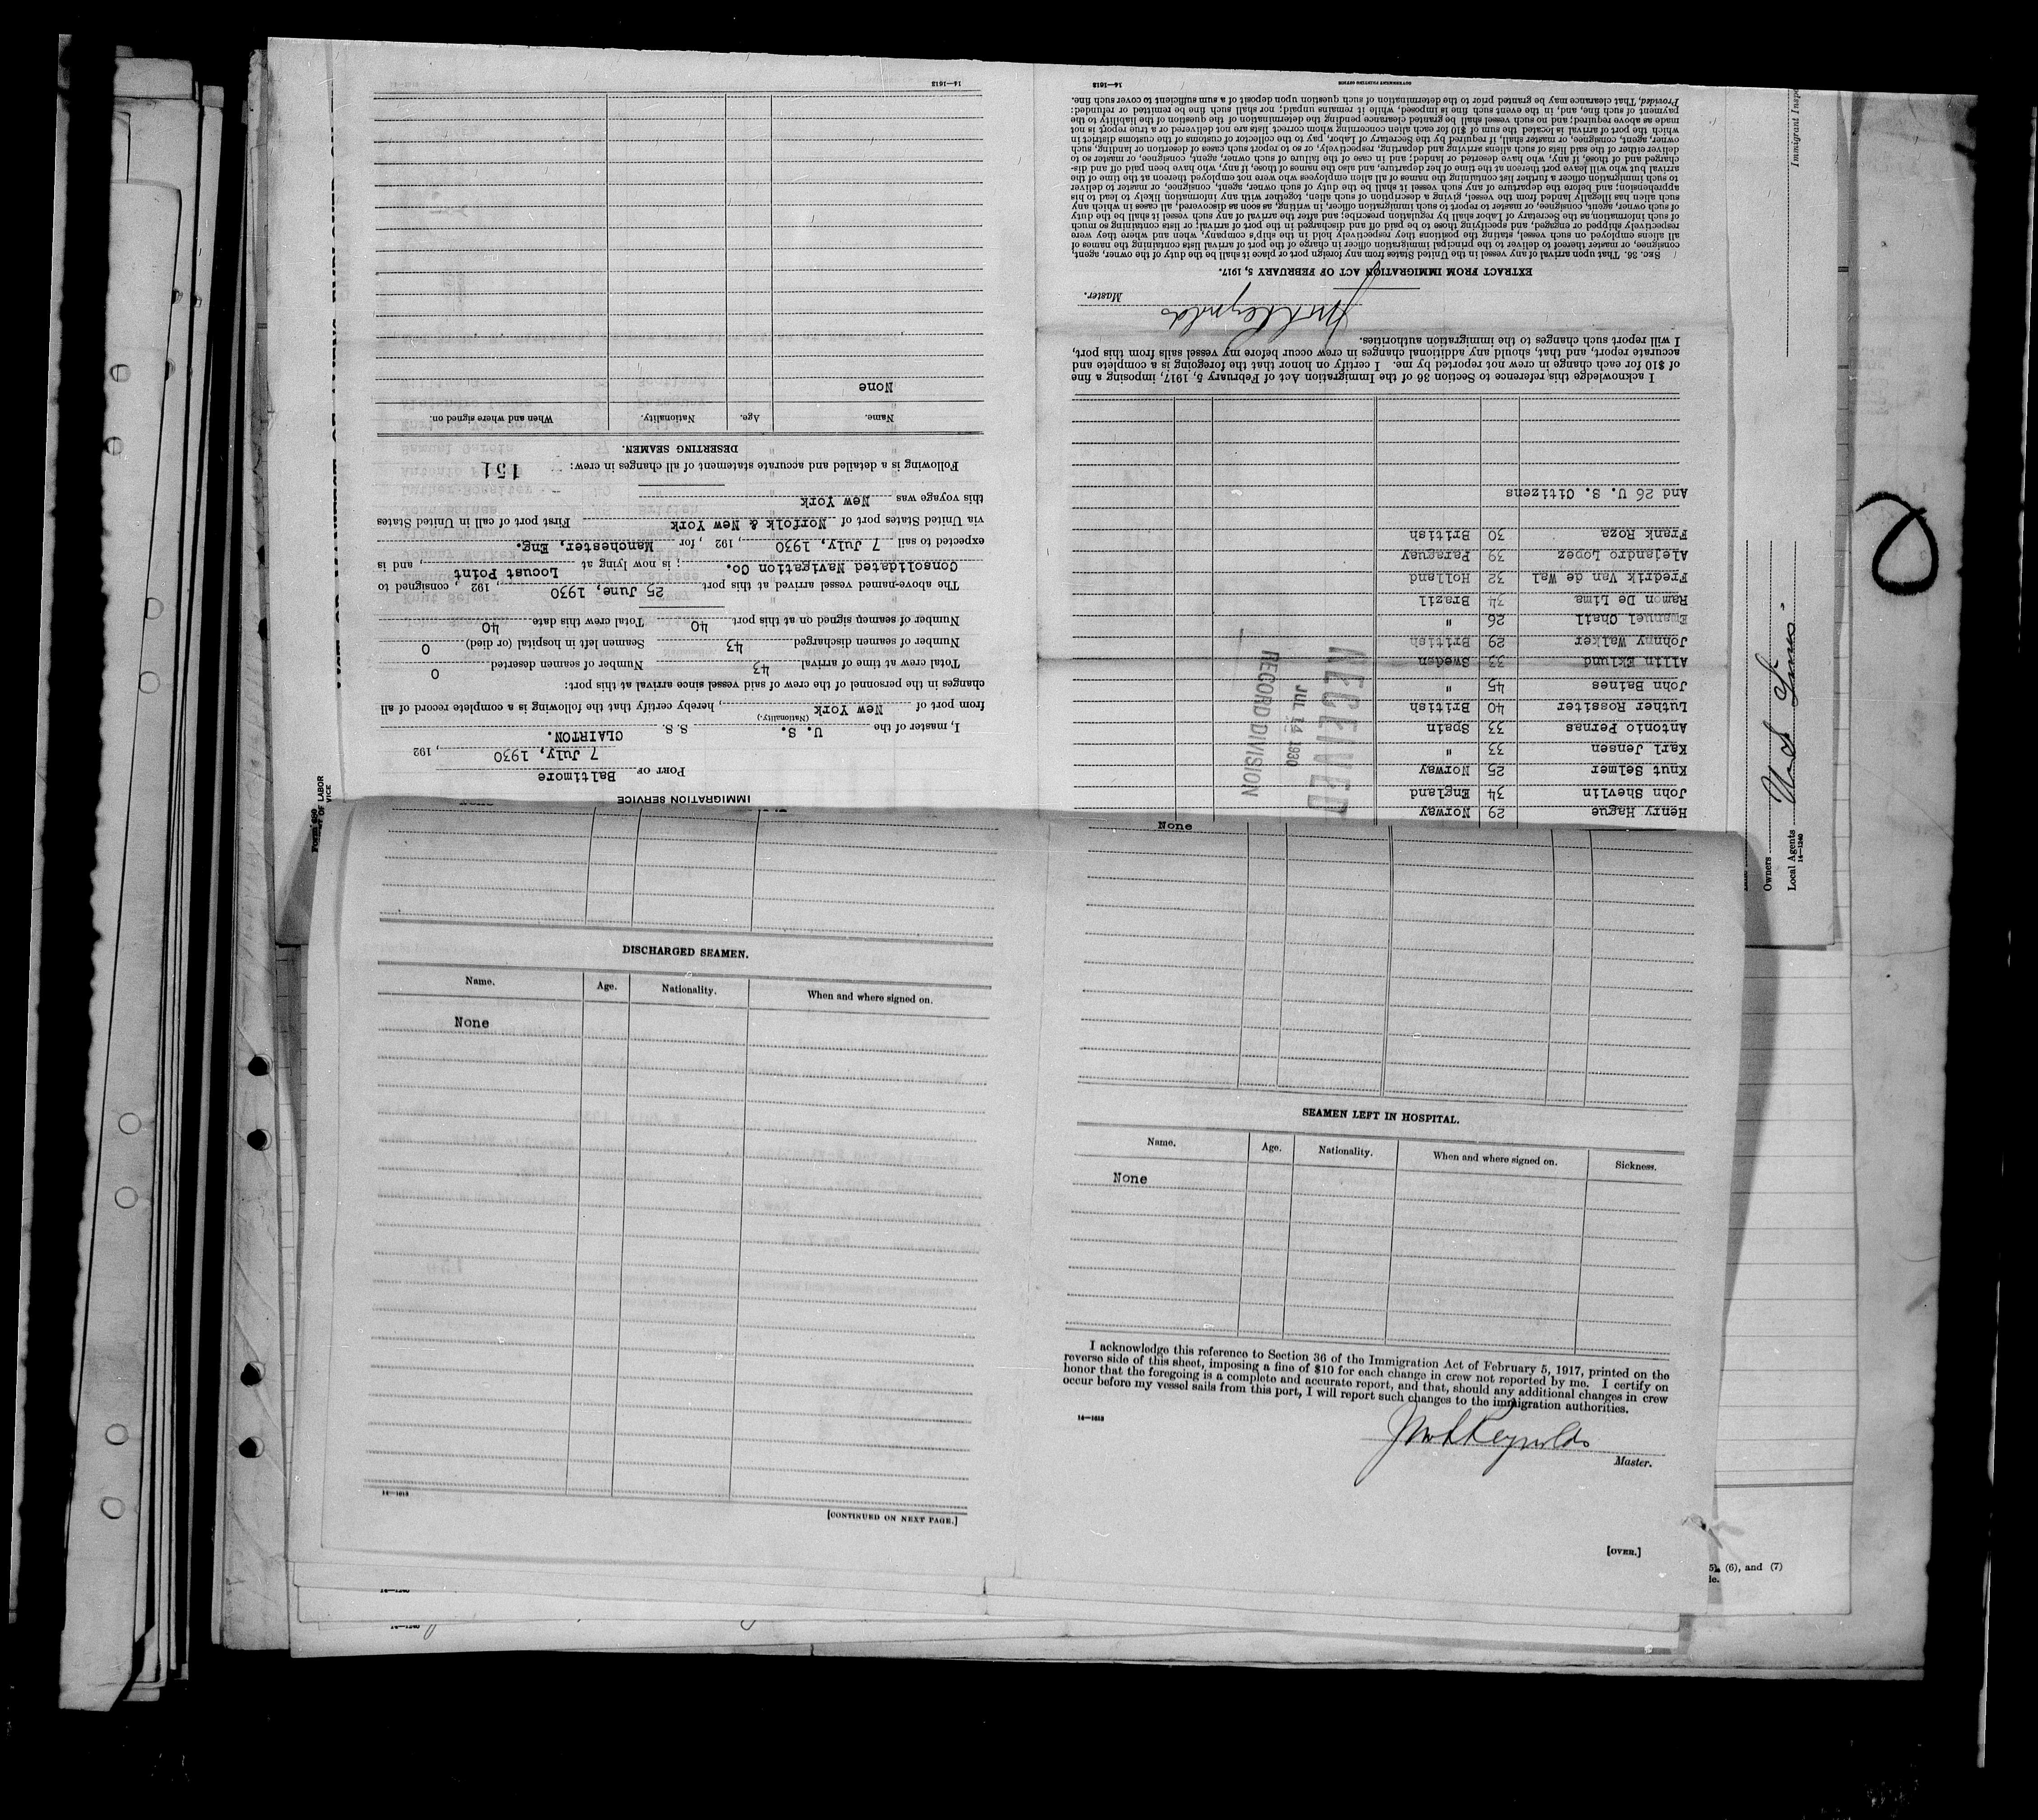 IMMIGRATION SERVICE
PORT OF Baltimore
7 July, 1930, 192
I, master of the U. S. S. S. CLAIRTON.
(Nationality.)
from port of New York, hereby certify that the following is a complete record of all
changes in the personnel of the crew of said vessel since arrival at this port:
Total crew at time of arrival 43 Number of seamen deserted 0
Number of seamen discharged 43 Seamen left in hospital (or died) 0
Number of seamen signed on at this port 40 Total crew this date 40
The above-named vessel arrived at this port 25 June, 1930, 192, consigned to
Consolidated Navigation Co.; is now lying at Locust Point, and is
expected to sail 7 July, 1930, 192, for Manchester, Eng.
via United States port of Norfolk & New York First port of call in United States
this voyage was New York
Following is a detailed and accurate statement of all changes in crew: 151
DESERTING SEAMEN.
Name. Age. Nationality. When and where signed on.
None
14—1613
Henry Hague 29 Norway
John Shevlin 34 England
Knut Selmer 25 Norway
Karl Jensen 33 "
Antonio Pernas 33 Spain
Luther Rossiter 40 British
John Baines 45 "
Allin Eklund 33 Sweden
Johnny Walker 29 British
Emanuel Chail 26 "
Ramon De Lima 34 Brazil
Fredrik Van de Wal 32 Holland
Alejandro Lopez 39 Paraguay
Frank Roza 30 British
And 26 U. S. Citizens
RECEIVED
JUL 14 1930
RECORD DIVISION
I acknowledge this reference to Section 36 of the Immigration Act of February 5, 1917, imposing a fine
of $10 for each change in crew not reported by me. I certify on honor that the foregoing is a complete and
accurate report, and that, should any additional changes in crew occur before my vessel sails from this port,
I will report such changes to the immigration authorities.
Reynolds
Master.
EXTRACT FROM IMMIGRATION ACT OF FEBRUARY 5, 1917.
SEC. 36. That upon arrival of any vessel in the United States from any foreign port or place it shall be the duty of the owner, agent,
consignee, or master thereof to deliver to the principal immigration officer in charge of the port of arrival lists containing the names of
all aliens employed on such vessel, stating the positions they respectively hold in the ship's company, when and where they were
respectively shipped or engaged, and specifying those to be paid off and discharged in the port of arrival; or lists containing so much
of such information as the Secretary of Labor shall by regulation prescribe; and after the arrival of any such vessel it shall be the duty
of such owner, agent, consignee, or master to report to such immigration officer, in writing, as soon as discovered, all cases in which any
such alien has illegally landed from the vessel, giving a description of such alien, together with any information likely to lead to his
apprehension; and before the departure of any such vessel it shall be the duty of such owner, agent, consignee, or master to deliver
to such immigration officer a further list containing the names of all alien employees who were not employed thereon at the time of the
arrival but who will leave port thereon at the time of her departure, and also the names of those, if any, who have been paid off and dis-
charged and of those, if any, who have deserted or landed; and in case of the failure of such owner, agent, consignee, or master so to
deliver either of the said lists of such aliens arriving and departing, respectively, or so to report such cases of desertion or landing, such
owner, agent, consignee, or master shall, if required by the Secretary of Labor, pay to the collector of customs of the customs district in
which the port of arrival is located the sum of $10 for each alien concerning whom correct lists are not delivered or a true report is not
made as above required; and no such vessel shall be granted clearance pending the determination of the question of the liability to the
payment of such fine, and, in the event such fine is imposed, while it remains unpaid; nor shall such fine be remitted or refunded:
Provided, That clearance may be granted prior to the determination of such question upon deposit of a sum sufficient to cover such fine.
14—1613
GOVERNMENT PRINTING OFFICE
DISCHARGED SEAMEN.
Name. Age. Nationality. When and where signed on.
None
14—1613
[CONTINUED ON NEXT PAGE.]
None
SEAMEN LEFT IN HOSPITAL.
Name. Age. Nationality. When and where signed on. Sickness.
None
I acknowledge this reference to Section 36 of the Immigration Act of February 5, 1917, printed on the
reverse side of this sheet, imposing a fine of $10 for each change in crew not reported by me. I certify on
honor that the foregoing is a complete and accurate report, and that, should any additional changes in crew
occur before my vessel sails from this port, I will report such changes to the immigration authorities.
14—1613
Reynolds
Master.
[OVER.]
Immigrant Inspe
Owners
Local Agents
14—1240
(6), and (7)